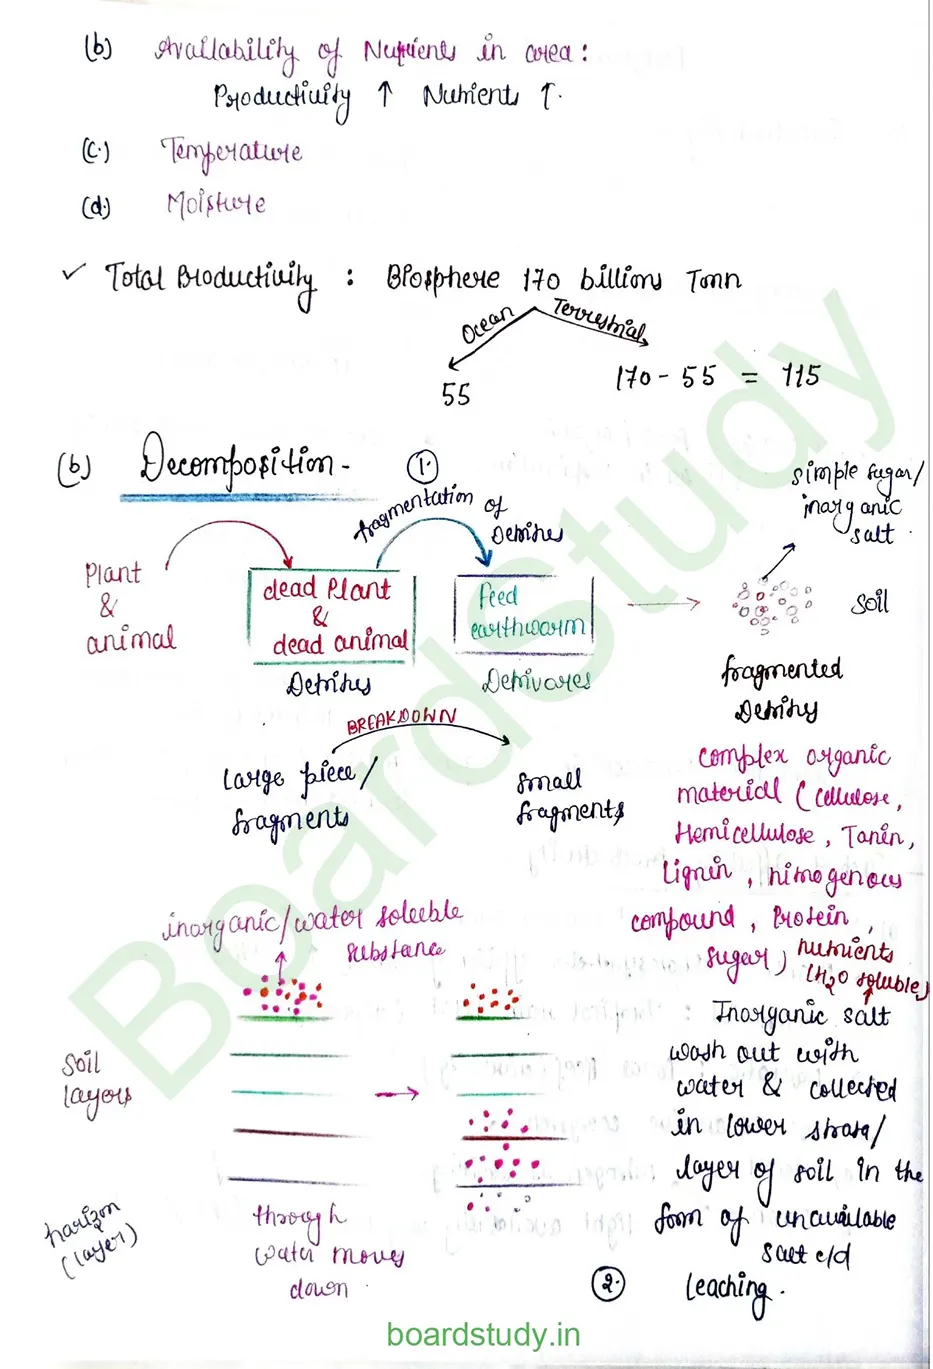 (b) Availability of Nutrients in area :
Productivity ↑ Nutrients ↑.
(c.) Temperature
(d.) Moisture
✓ Total Productivity : Biosphere 170 billions Tonn
Ocean
Terrestrial
55
170 - 55 = 115
(b) Decomposition -
1.
fragmentation of
Detritus
simple sugar/
inorganic
salt.
Plant
&
animal
dead Plant
&
dead animal
feed
earthworm
soil
Detritus
Detrivores
fragmented
Detritus
BREAKDOWN
large piece/
fragments
small
fragments
complex organic
material (cellulose,
Hemicellulose, Tanin,
lignin, nimogenous
compound, Protein,
sugar)
nutrients
(H2O soluble)
inorganic/water soluble
substance
Soil
layers
Inorganic salt
wash out with
water & collected
in lower strata/
layer of soil in the
form of unavailable
salt c/d
2. leaching.
harizon
(layer)
through
water moves
down.
BoardStudy
boardstudy.in